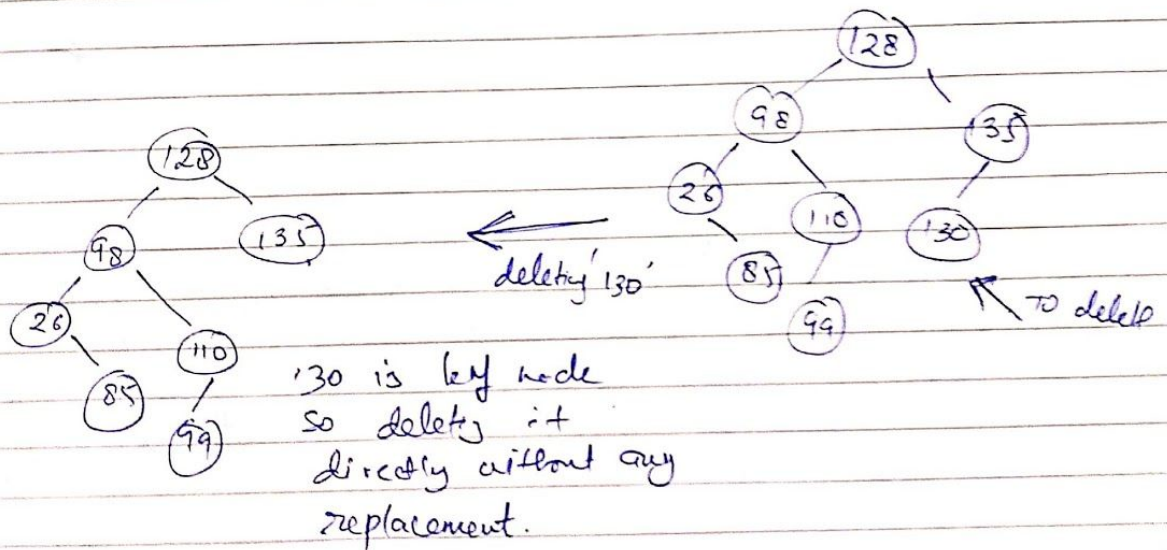 128
98
135
26
110
130
85
99
To delete
deleting '130'
128
98
135
26
110
85
99
130 is leaf node
so deleting it
directly without any
replacement.